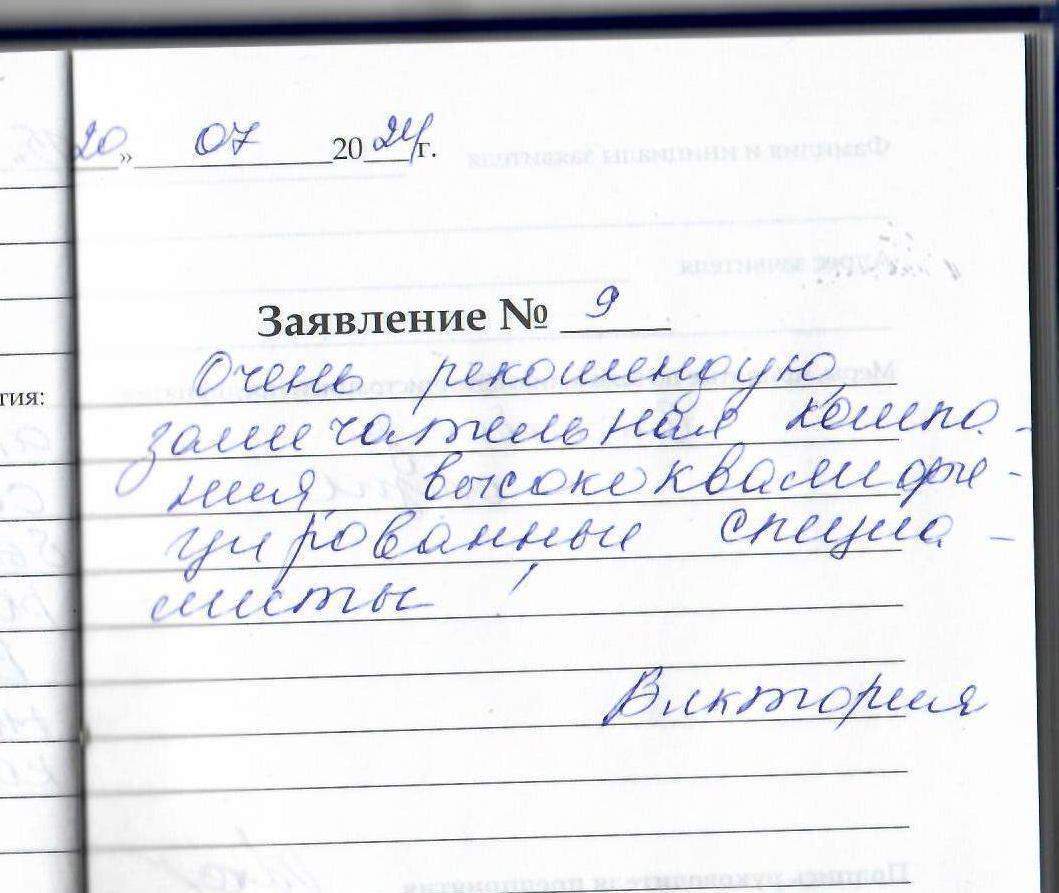 20 » 07 2024 г.
Заявление № 9
Очень рекомендую,
замичательная компа-
тия:
ния высококвалифи-
цированные специа-
листы !
Виктория